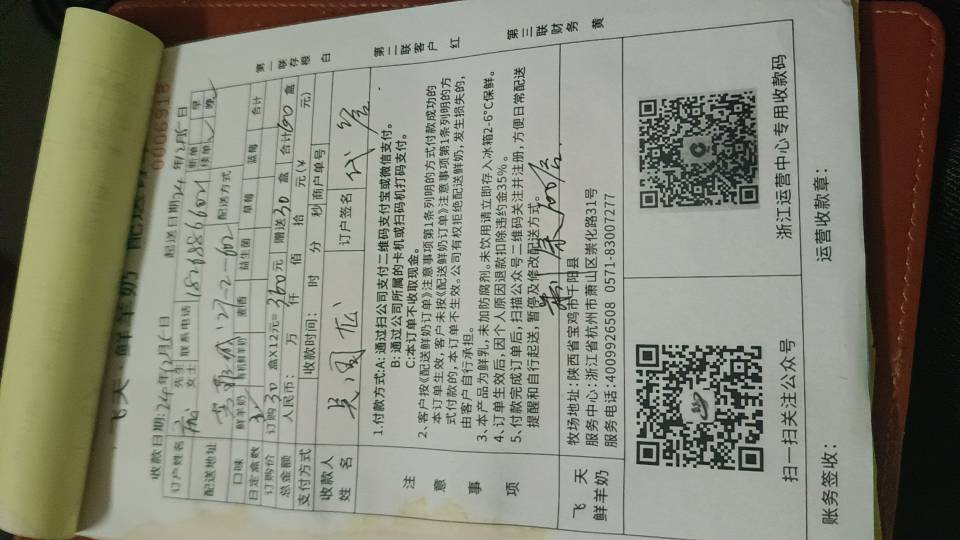 飞天·鲜羊奶
0006918
收款日期:24年12月15日 起送日期:24年12月15日
订户姓名 先生 女士 联系电话 18268866021 新单 续单 早 晚
配送地址 27-2-602 配送方式
口味 鲜羊奶 有机鲜羊奶 麦香 益生菌 草莓 蓝莓 合计
日定盒数
订购价 订购30盒X12元=360元 赠送30盒 合计60盒
总金额 人民币: 万 仟 佰 拾 元(¥ 元)
支付方式 收款时间: 时 分 秒 商户单号
收款人姓名 吴凤龙 订户签名 代签
注意事项
1.付款方式:A: 通过扫公司支付二维码支付宝或微信支付。
B: 通过公司所属的卡机或扫码机打码支付。
C:本订单不收取现金。
2、客户按《配送鲜奶订单》注意事项第1条列明的方式付款成功的
本订单生效,客户未按《配送鲜奶订单》注意事项第1条列明的方
式付款的,本订单不生效。公司有权拒绝配送鲜奶,发生损失的,
由客户自行承担。
3、本产品为鲜乳,未加防腐剂。未饮用请立即存入冰箱2-6°C保鲜。
4、订单生效后,因个人原因退款扣除违约金35%。
5、付款完成订单后,扫描公众号二维码关注并注册,方便日常配送
提醒和自行起送,暂停及修改配送方式。
飞天
鲜羊奶
牧场地址:陕西省宝鸡市千阳县
服务中心:浙江省杭州市萧山区崇化路31号
服务电话:4009926508 0571-83007277
扫一扫关注公众号
浙江运营中心专用收款码
账务签收:
运营收款章:
第一联存根 白
第二联客户 红
第三联财务 黄